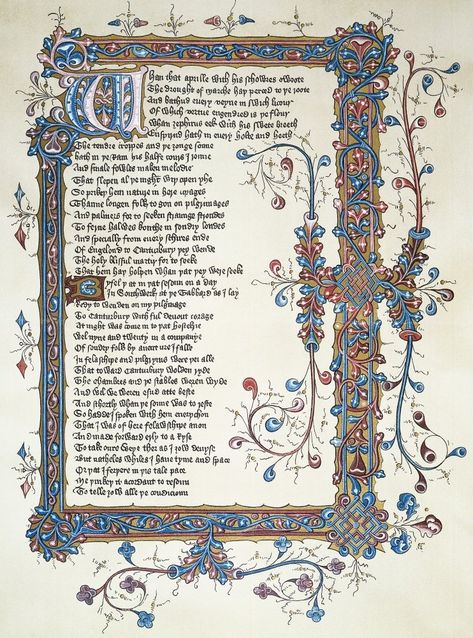 Whan that aprille with his schowres swoote
The drought of marche hay perced to ye roote
And bathud every veyne in swich licour
Of which vertue engendred is ye flour
Whan zephirus eek with his swete breeth
Enspirud hath in every holte and heeth
The tendre croppes and ye yonge sonne
hath in ye Ram his halfe cours i ronne
And smale fowles maken melodie
That slepen al ye night wiþ open yhe
So prikeþ hem nature in here corages
Thanne longen folk to gon on pilgrimages
And palmers for to seeken straunge strondes
To ferne halwes couthe in sondry londes
And specially from every schires ende
Of Engelond to Caunturbury yey wende
The holy blisful martir for to seeke
That hem hay holpen whan yat yey were seeke
Byfel yt in yat sesoun on a day
In Southwerk at ye Tabbard as I lay
Redy to wenden on my pilgrimage
To Cauntturbury with ful devout corage
At night was come in to yat hostelrie
Wel nyne and twenty in a companye
Of sondry folk by aventure i falle
In felaschipe and pilgryms were yei alle
That toward Cauntturbury wolden ryde
The chambres and ye stables weren wyde
And wel we weren esud atte beste
And schortly whan ye sonne was to reste
So hadde I spoken with hem everychon
That I was of here felawschipe anon
And made forward erly to a ryse
To take oure weye ther as I yow devyse
But natheles whiles I have tyme and space
Or yat I ferþere in yis tale pace
Me þinkeþ it acordant to resoun
To telle yow alle ye condicioun